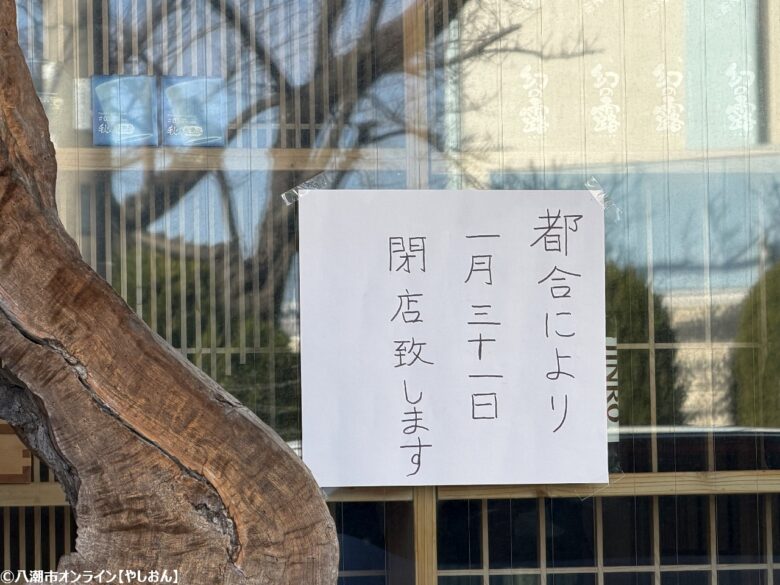 都合により
一月三十一日
閉店致します
幻の露
幻の露
幻の露
幻の露
©八潮市オンライン【やしおん】